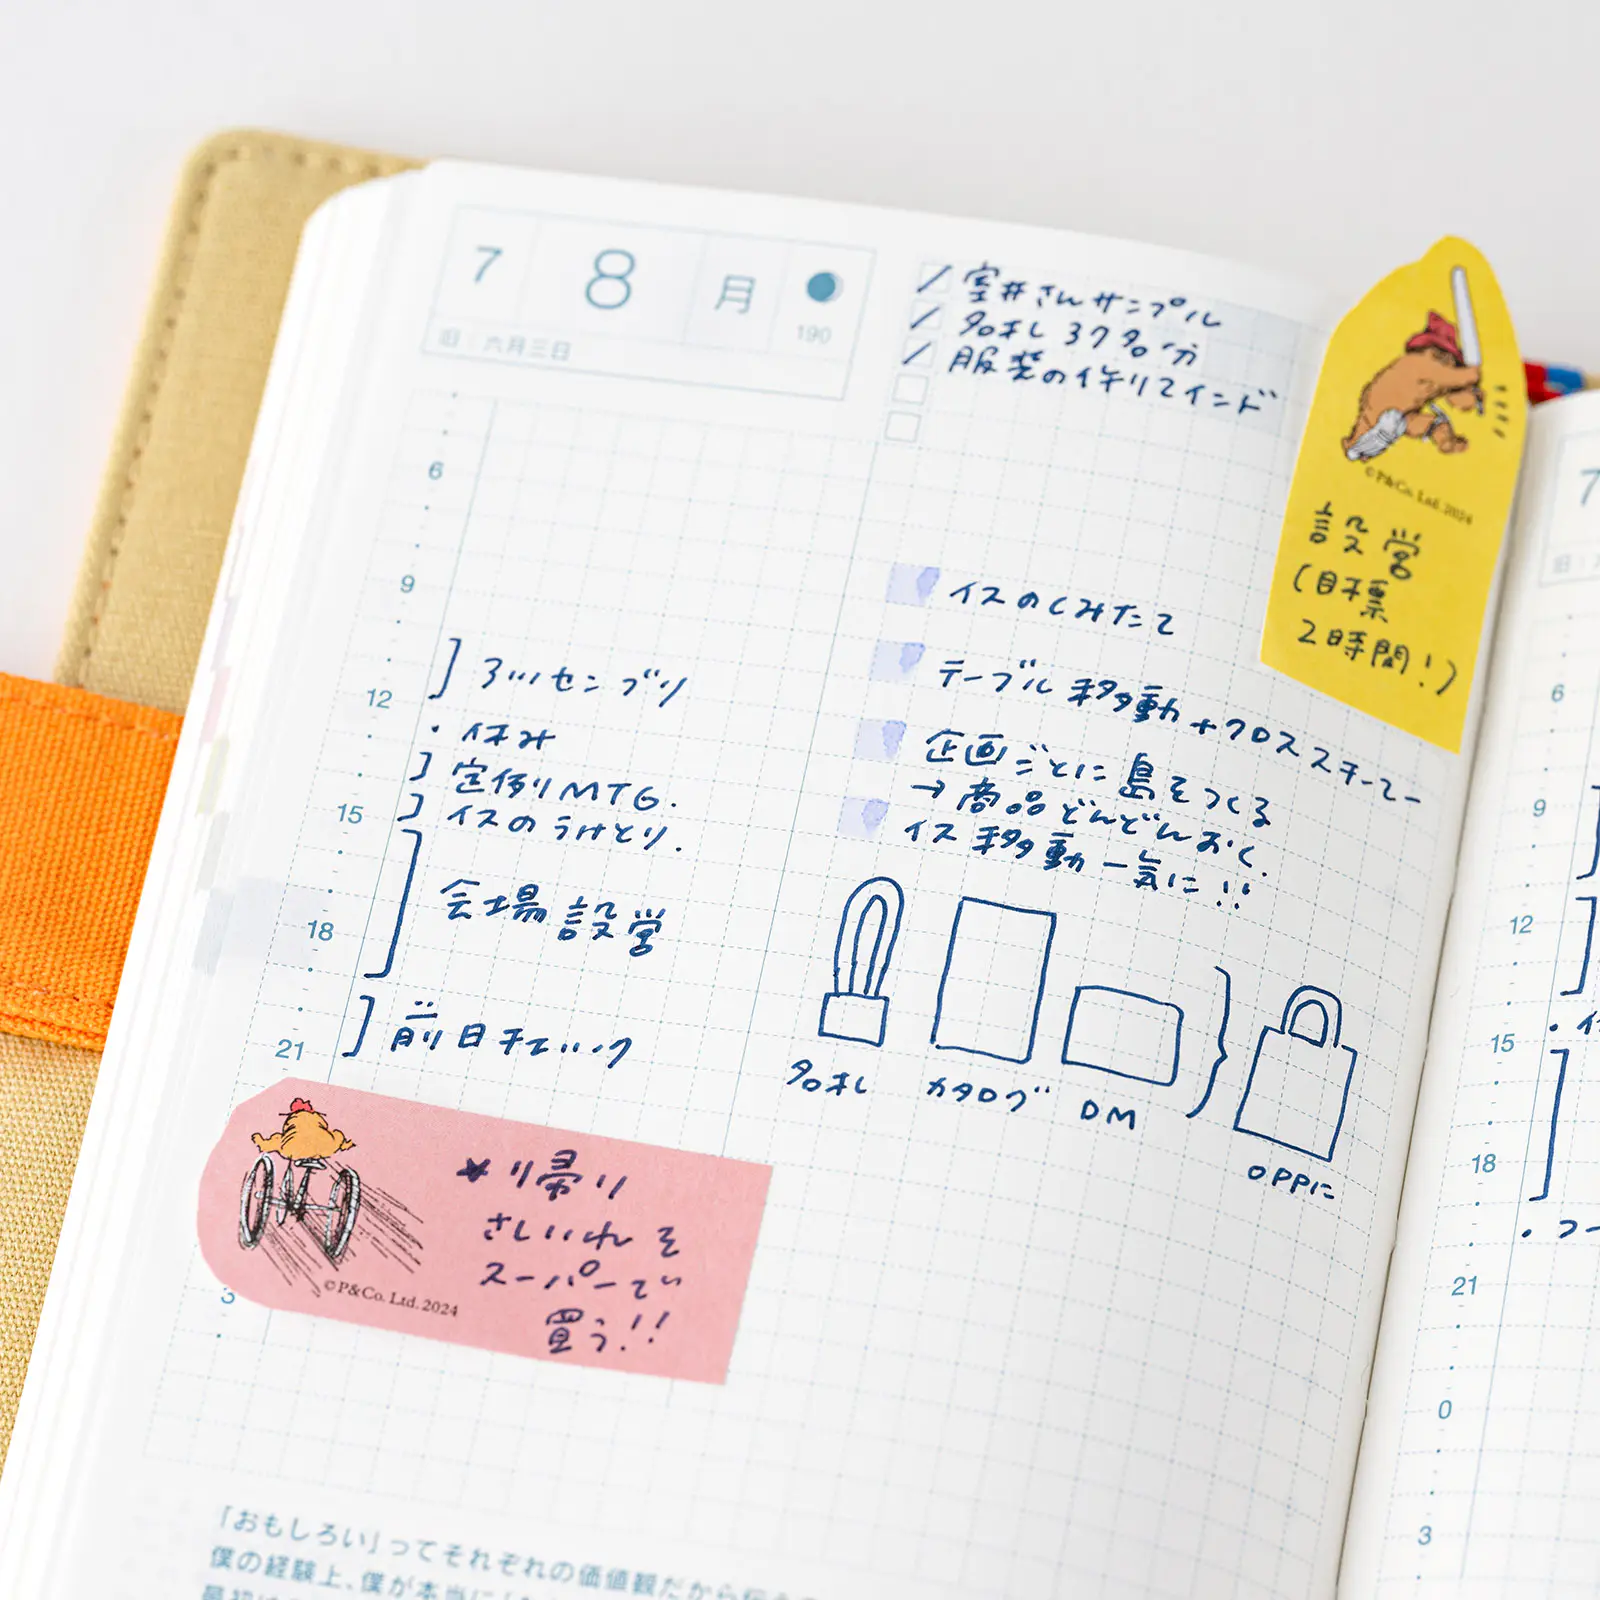 7 8 月
190
旧:六月三日
室井さんサンプル
名札 37名分
服装の件リマインド
6
9
12
15
18
21
3
アッセンブリ
・休み
定例MTG.
イスのうけとり.
会場設営
前日チェック
イスのくみたて
テーブル移動+クロススチーマー
企画ごとに島をつくる
→商品どんどんおく.
イス移動一気に!!
名札
カタログ
DM
OPPに
©P&Co. Ltd. 2024
設営
(目標
2時間!)
©P&Co. Ltd. 2024
帰り
さしいれを
スーパーで
買う!!
「おもしろい」ってそれぞれの価値観だから
僕の経験上、僕が本当に
7
6
9
12
15
18
21
0
3